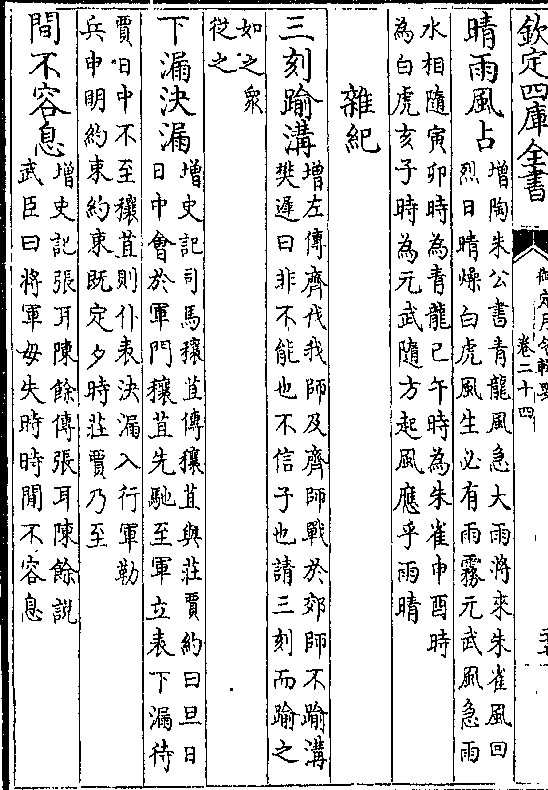 欽定四庫全書
御定月令輯要
卷二十四
晴雨風占
增陶朱公書青龍風急大雨將來朱雀風回
烈日晴燥白虎風生必有雨霧元武風急雨
水相隨寅卯時為青龍巳午時為朱雀申酉時
為白虎亥子時為元武隨方起風應乎雨晴
雜紀
三刻踰溝
增左傳齊伐我師及齊師戰於郊師不踰溝
樊遲曰非不能也不信子也請三刻而踰之
如之衆
從之
下漏決漏
增史記司馬穰苴傳穰苴與莊賈約曰旦日
日中會於軍門穰苴先馳至軍立表下漏待
賈日中不至穰苴則仆表決漏入行軍勒
兵申明約束約束既定夕時莊賈乃至
間不容息
增史記張耳陳餘傳張耳陳餘説
武臣曰將軍毋失時時間不容息